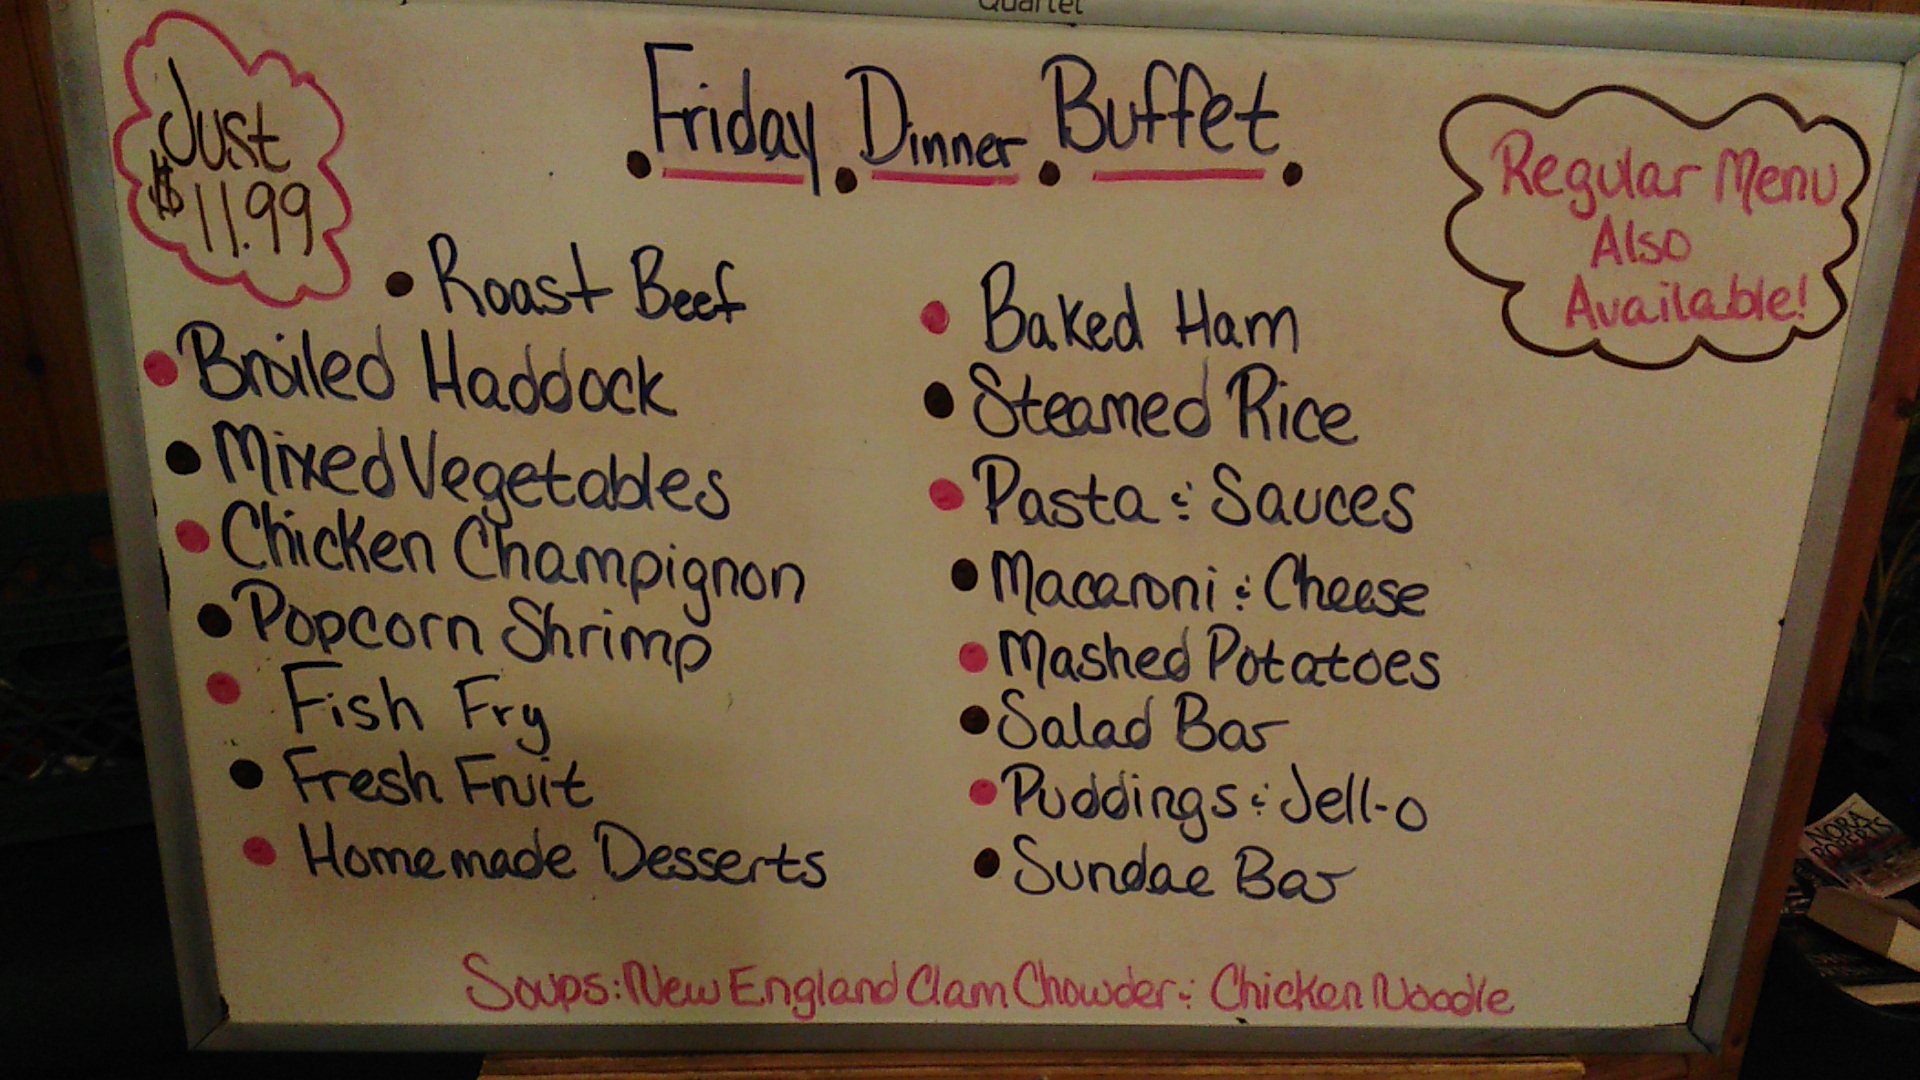 Quartet
Just
$11.99
• Friday • Dinner • Buffet •
Regular Menu
Also
Available!
• Roast Beef
• Broiled Haddock
• Mixed Vegetables
• Chicken Champignon
• Popcorn Shrimp
• Fish Fry
• Fresh Fruit
• Homemade Desserts
• Baked Ham
• Steamed Rice
• Pasta & Sauces
• Macaroni & Cheese
• Mashed Potatoes
• Salad Bar
• Puddings & Jell-o
• Sundae Bar
Soups: New England Clam Chowder & Chicken Noodle
NORA
ROBERTS